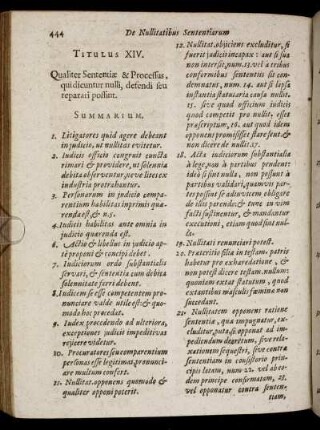 444
De Nullitatibus Sententiarum
TITULUS XIV.
Qualiter Sententiæ & Processus,
qui dicuntur nulli, defendi seu
reparari possint.
SUMMARIUM.
1. Litigatores quid agere debeant
in judicio, ut nullitas evitetur.
2. Judicis officio congruit cuncta
rimari & providere, ut solennia
debita observentur, neve lites ex
industria protrahantur.
3. Personarum in judicio comparentium
habilitas imprimis quærenda
est & n. 5.
4. Judicis habilitas ante omnia in
judicio quærenda est.
6. Actio & libellus in judicio apte
proponi & concipi debet.
7. Judiciorum ordo substantialis
servari, & sententia cum debita
solennitate ferri debent.
8. Judicem se esse competentem pronunciare
valde utile est: & quomodo
hoc procedat.
9. Index procedendo ad ulteriora,
exceptiones judicii impeditivas
rejicere videtur.
10. Procuratores seu comparentium
personas esse legitimas, pronunciare
multum confert.
11. Nullitat. opponens quomodo &
qualiter opponi poterit.
12. Nullitat. objiciens excluditur, si
fuerit judicii incapax aut si sua
non intersit, num. 13. vel à tribus
conformibus sententiis sit condemnatus,
num. 14. aut si lapsa
sint tempora statuta in causa nullit.
15. seve quod officium judicis
quod competit pro nullit. esset
præscriptum, 16. aut quod idem
opponens promisisset stare sent. &
non dicere de nullit. 17.
18. Acta judiciorum substantialia
à lege, non à partibus pendent:
ideò si sint nulla, non possunt à
partibus validari, quamvis partes
possent se ad invicem obligare
de illis parendo: & tunc in vim
facti sustinentur, & mandantur
executioni, etiam quod sint nulli.
19. Nullitati renunciari potest.
20. Præteritio filii in testam. patris
habetur pro exhæredatione, &
non potest dicere testam. nullum:
quoniam extat statutum, quod
extantibus masculis fœminæ non
succedant.
21. Nullitatem opponens ratione
sententiæ, qua impugnatur, excluditur,
puta si opponat ad impediendum
decretum, seu relaxationem
sequestri, seu contra
sententiam in consistorio principis
latam, num 22. vel ab eodem
principe confirmatam, 23.
vel opponatur contra senten-
tiam,